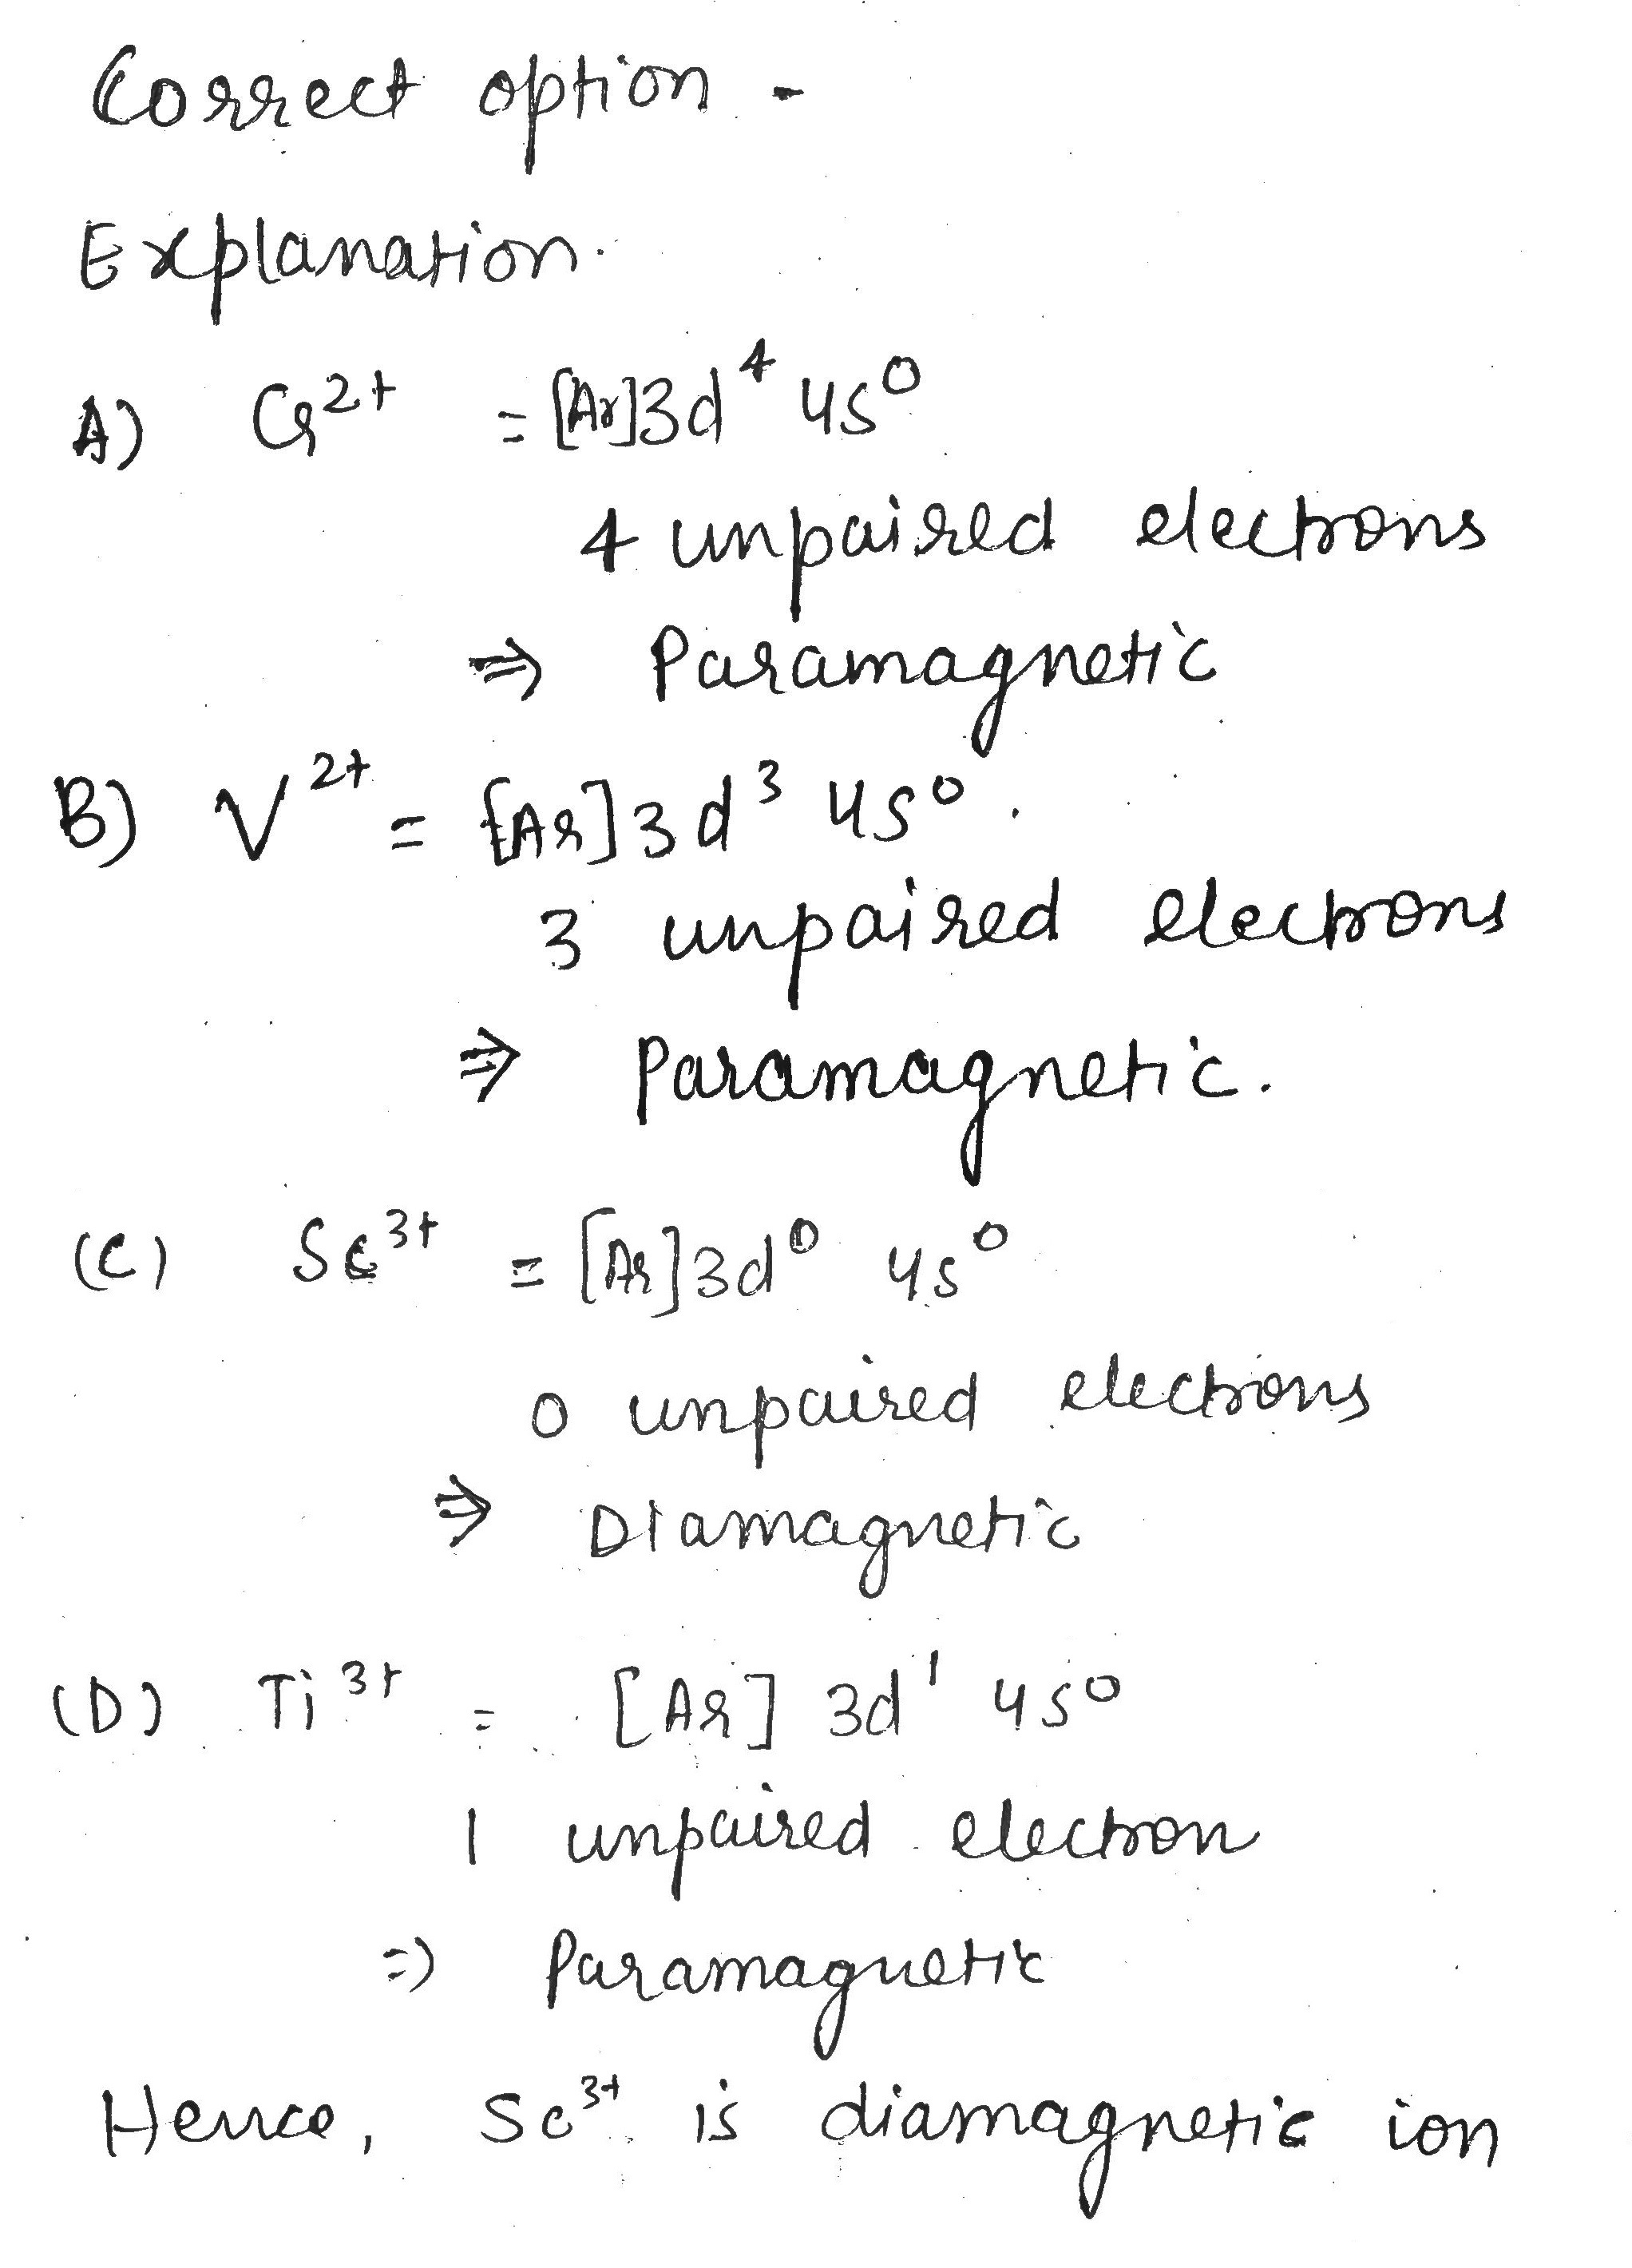 Correct option -
Explanation.
A) Cr²⁺ = [Ar]3d⁴ 4s⁰
4 unpaired electrons
⇒ Paramagnetic
B) V²⁺ = [Ar]3d³ 4s⁰.
3 unpaired electrons
⇒ Paramagnetic.
(C) Sc³⁺ = [Ar]3d⁰ 4s⁰
0 unpaired electrons
⇒ Diamagnetic
(D) Ti³⁺ = [Ar] 3d¹ 4s⁰
1 unpaired electron
=) Paramagnetic
Hence, Sc³⁺ is diamagnetic ion